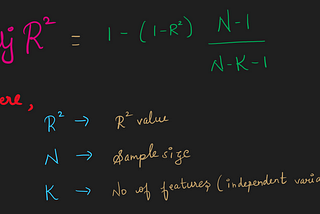 dj R² = 1 - (1-R²) N-1
N-K-1
ere,
R² → R² value
N → Sample size
K → No of features (independent varia